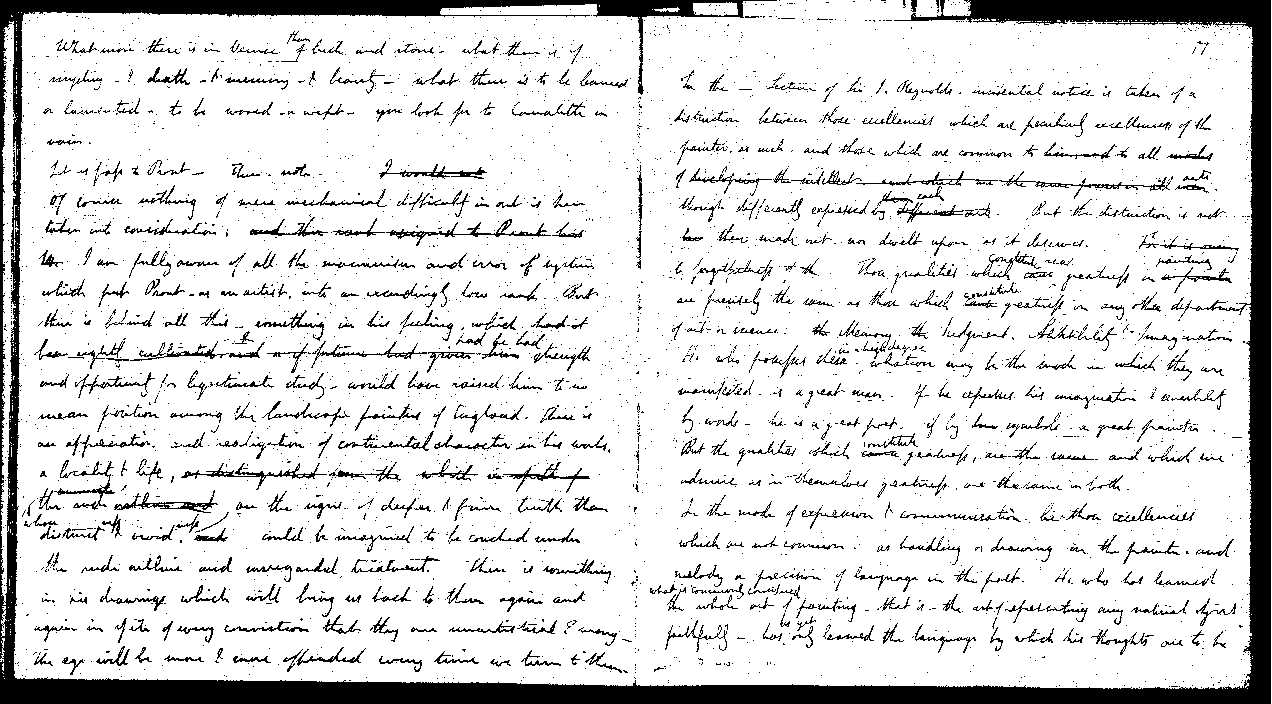 What more there is in Venice than of brick and stone - what there is of
mystery - & death - & memory - & beauty - what there is to be learned
or lamented - to be wooed - or wept - you look for to Canaletti in
vain.
Let us pass to Prout - Then - note. I would not
Of course nothing of mere mechanical difficulty in art is here
taken into consideration; and the rank assigned to Prout his
I am fully aware of all the mannerism and error of system
which put Prout - as an artist, into an exceedingly low rank. But
there is behind all this - something in his feeling, which had it
been rightly cultivated, and had he had strength
and opportunity for legitimate study - would have raised him to no
mean position among the landscape painters of England. There is
an appreciation and realization of continental character in his works,
a locality & life, as distinguished from the which in spite of
the rude outline and are the signs of deeper & finer truth than
distinct & vivid, could be imagined to be couched under
the rude outline and unregarded treatment. There is something
in his drawings which will bring us back to them again and
again in spite of every conviction that they are unartistical & wrong -
The eye will be more & more offended every time we turn to them
17
In the - Lecture of Sir J. Reynolds - incidental notice is taken of a
distinction between those excellencies which are peculiarly excellences of the
painter, as such - and those which are common to him and to all modes
of developing the intellect - and which are the same powers in all men arts
though differently expressed by them each different arts. But the distinction is not
there made out nor dwelt upon as it deserves. For it is owing
to forgetfulness of the Those qualities which cause greatness in a painter painting
are precisely the same as those which constitute greatness in any other department
of art or science. the Memory, the Judgment, Sensibility & Imagination
He who possesses these in a high degree - whatever may be the mode in which they are
manifested - is a great man. If he expresses his imagination & sensibility
by words - he is a great poet. if by symbols - a great painter.
But the qualities which constitute greatness, are the same and which we
admire as in themselves greatness, are the same in both.
In the mode of expression & communication, lie those excellencies
which are not common: as handling or drawing in the painter - and
melody or precision of language in the poet. He who has learned
what is commonly considered
the whole art of painting - that is - the art of representing any natural object
faithfully - has as yet only learned the language by which his thoughts are to be